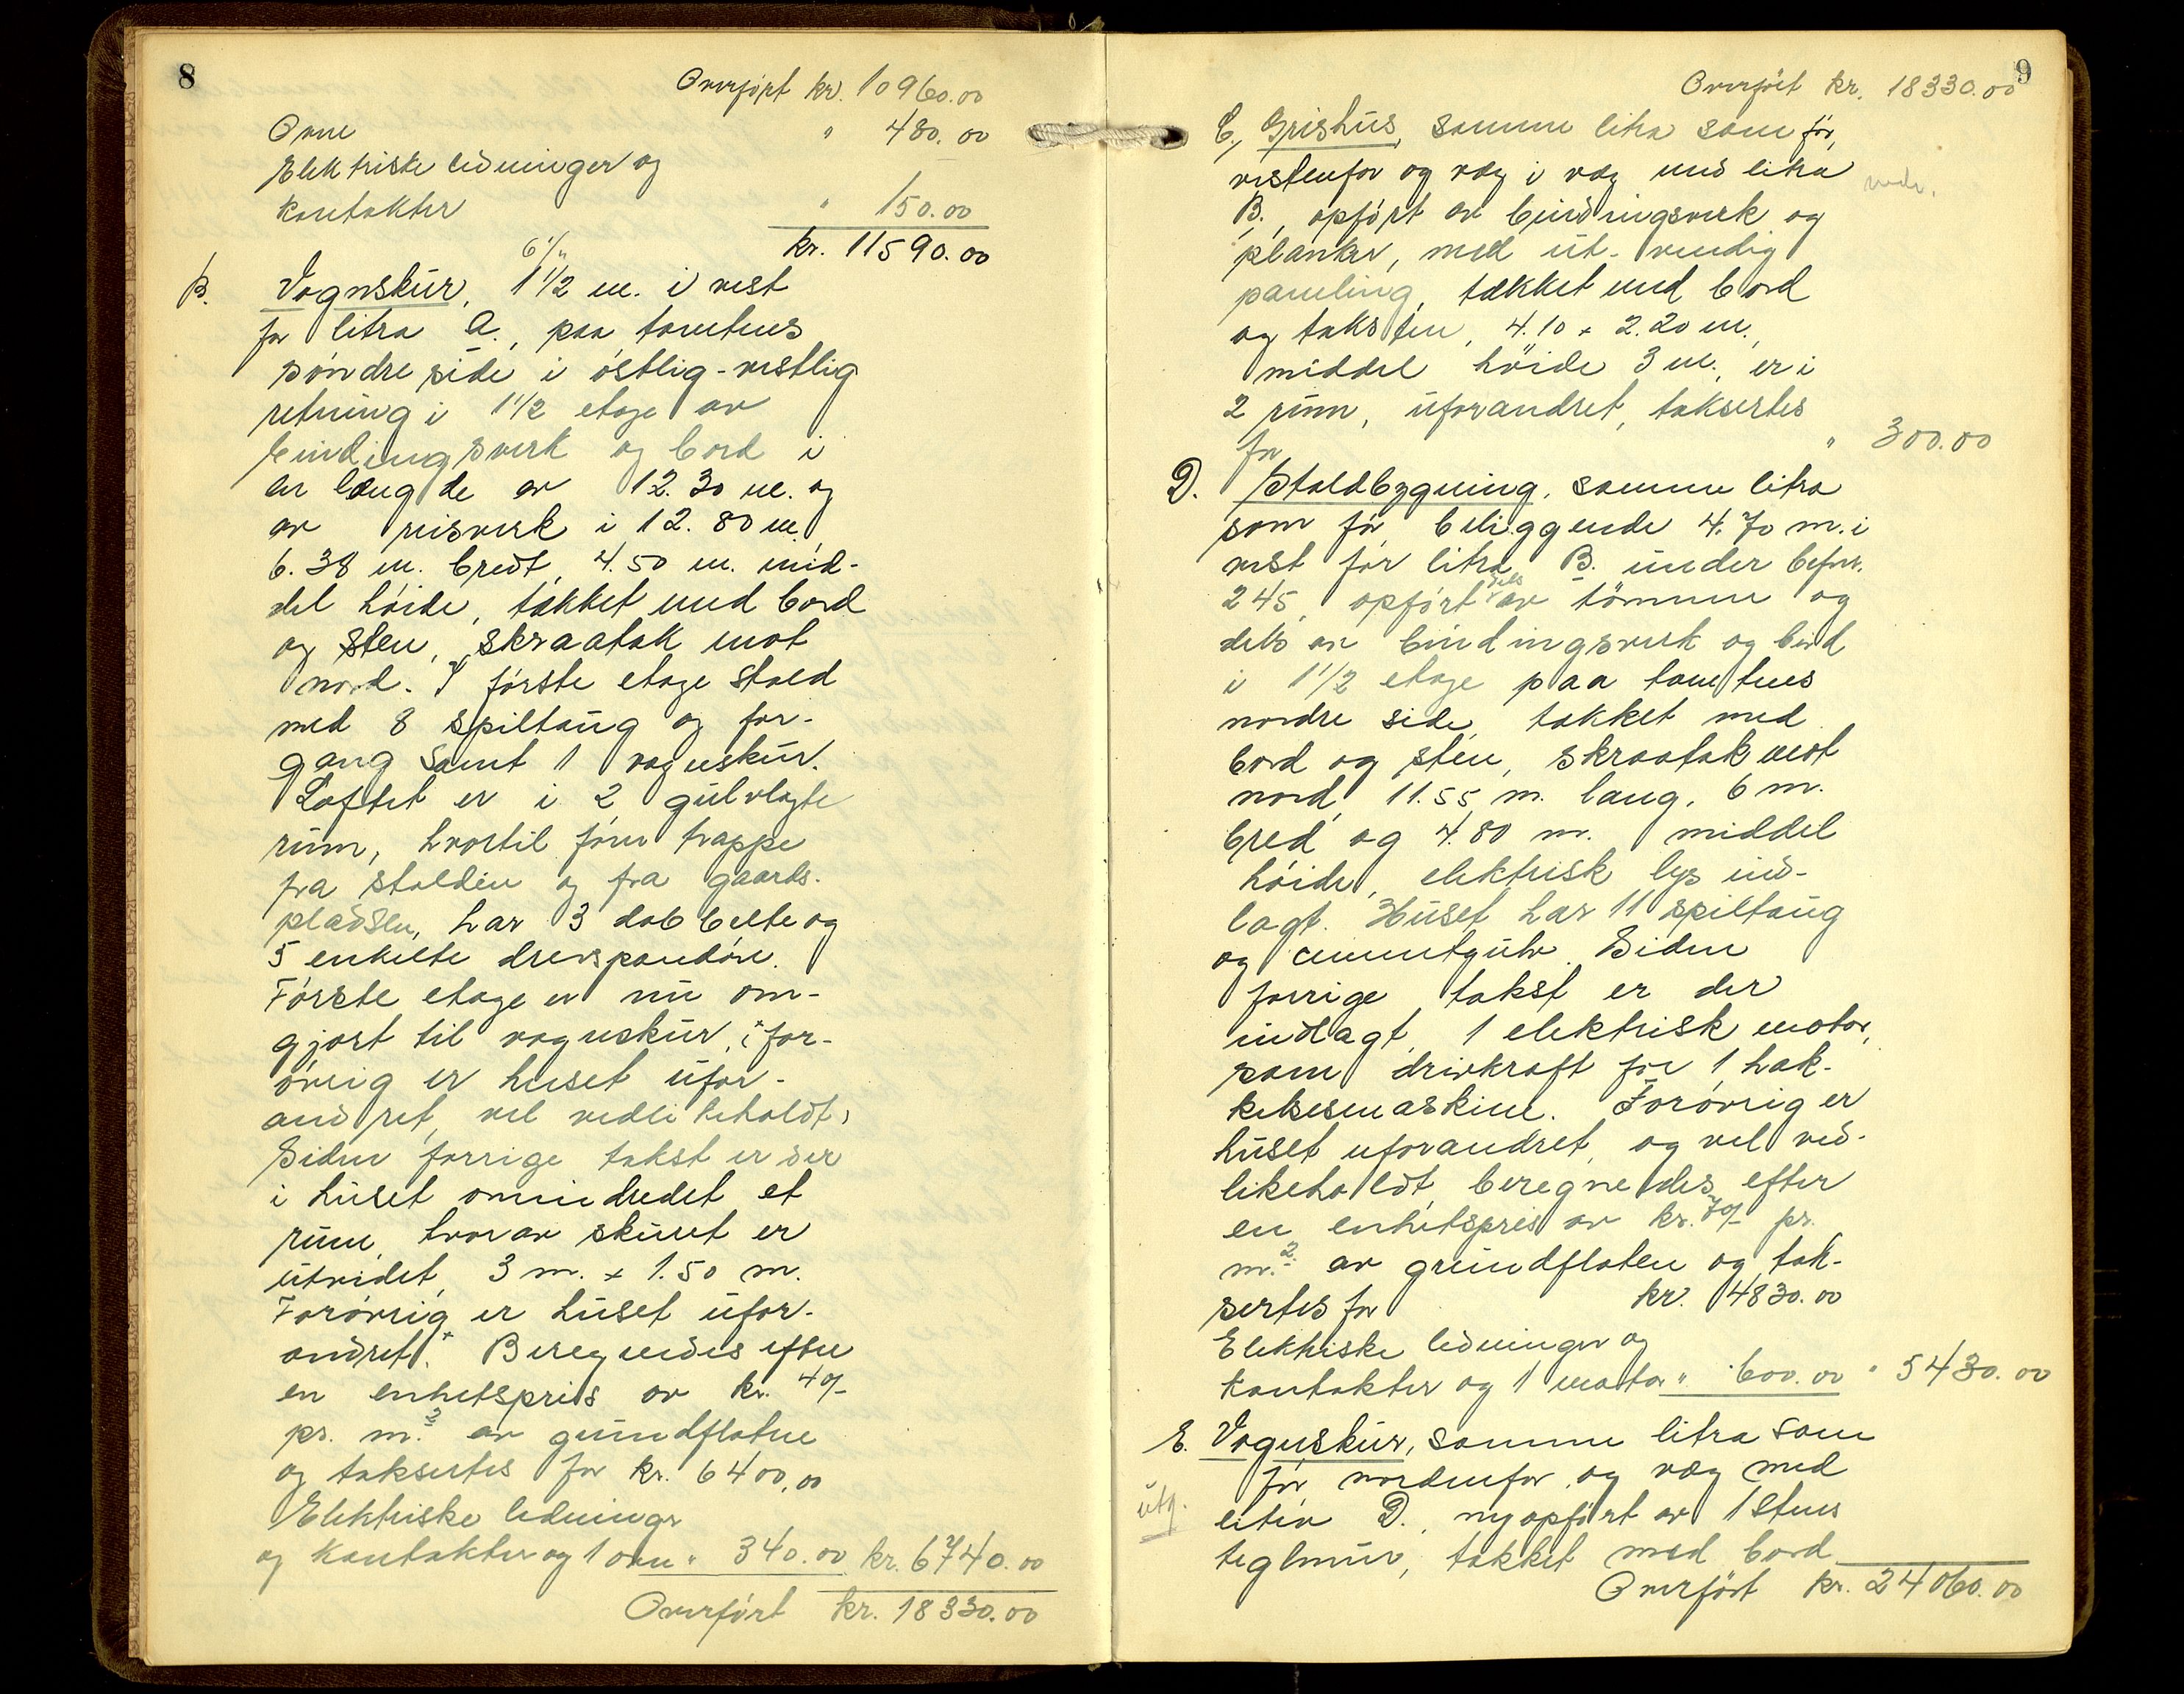 8
Overført kr. 10960.00
Ovne " 480.00
Elektriske ledninger og
kontakter " 150.00
kr. 11590.00
B. Vognskur, 1 1/2 m. i vest
for litra A., paa tomtens
søndre side i østlig-vestlig
retning i 1 1/2 etage av
bindingsverk og bord i
en længde av 12.30 m. og
av reisverk i 12.80 m.,
6.38 m. bredt, 4.50 m. mid-
del høide, tækket med bord
og sten, skraatak mot
nord. I første etage stald
med 8 spiltaug og for-
gang samt 1 vognskur.
Loftet er i 2 gulvlagte
rum, hvortil fører trappe
fra stalden og fra gaards-
pladsen, har 3 dobbelte og
5 enkelte
Første etage er nu om-
gjort til vognskur, i for-
øvrig er huset ufor-
andret, vel vedlikeholdt,
Siden forrige takst er der
i huset omindredet et
rum, hvorav skuret er
utvidet, 3 m. x 1.50 m.
Forøvrig er huset ufor-
andret. Beregnedes efter
en enhetspris av kr. 40/-
pr. m.² av grundflaten
og taksertes for kr. 6400.00
Elektriske ledninger
og kontakter og 1 ovn " 340.00 kr. 6740.00
Overført kr. 18330.00
9
Overført kr. 18330.00
C., Grishus, samme litra som før,
vestenfor og væg i væg med litra
B., opført av bindingsverk og
planker, med ut-vendig
paneling, tækket med bord
og taksten, 4.10 x 2.20 m.,
middel høide 3 m., er i
2 rum, uforandret, taksertes
for " 300.00
D. Staldbygning, samme litra
som før, beliggende 4.70 m. i
vest for litra B. under
245, opført dels av tømmer og
dels av bindingsverk og bord
i 1 1/2 etage paa tomtens
nordre side, tækket med
bord og sten, skraatak mot
nord, 11.55 m. lang, 6 m.
bred og 4.80 m. middel
høide, elektrisk lys ind-
lagt. Huset har 11 spiltaug
og cementgulv. Siden
forrige takst er der
indlagt 1 elektrisk motor,
som drivkraft for 1 hak-
kelsesmaskine. Forøvrig er
huset uforandret, og vel ved-
likeholdt, beregnedes efter
en enhetspris av kr. 70/- pr.
m.² av grundflaten og tak-
sertes for kr. 4830.00
Elektriske ledninger og
kontakter og 1 motor " 600.00 " 5430.00
E. Vognskur, samme litra som
før nordenfor og væg med
litra D., nyopført av 1 stens
utg.
teglmur, tækket med bord
Overført kr. 24060.00